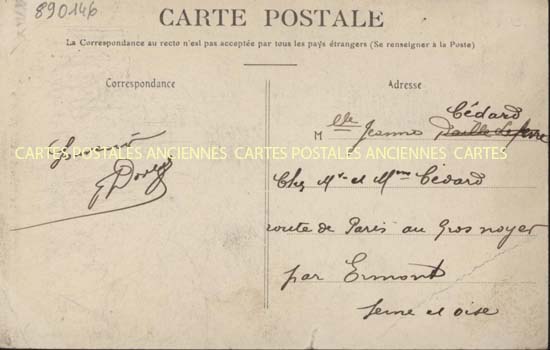 890146
CARTE POSTALE
La Correspondance au recto n'est pas acceptée par tous les pays étrangers (Se renseigner à la Poste)
Correspondance
Adresse
Cédard
Mlle Jeanne
CARTES POSTALES ANCIENNES CARTES POSTALES ANCIENNES CARTES
Chez Mr et Mme Cédard
route de Paris au Gros noyer
par Ermont
Seine et oise